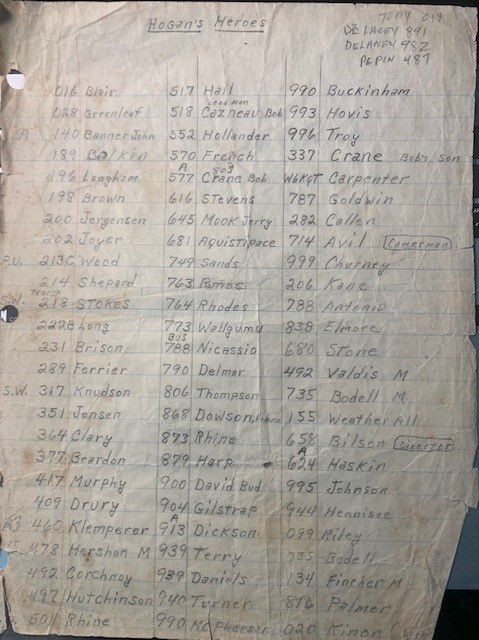 Hogan's Heroes
TONY 019
DE LACEY 891
DELANEY 982
PEPIN 487
016 Blair 517 Hall 990 Buckinham
Lead Man
028 Greenleaf 518 Cazneau Bob 993 Hovis
A 140 Banner John 552 Hollander 996 Troy
189 Balkin 570 French 337 Crane Bob's son
A 803
196 Langham 577 Crane Bob W6KGT Carpenter
198 Brown 616 Stevens 787 Goldwin
200 Jergensen 645 Mook Jerry 282 Callen
202 Joyer 681 Aguistipace 714 Avil Camerman
P.U. 213C Wood 749 Sands 999 Churney
214 Shepard 763 Rambs 206 Kane
218 STOKES 764 Rhodes 788 Antonio
222B Long 773 Wallgumu 838 Elmore
BUS
231 Brison 788 Nicassio 680 Stone
289 Forrier 790 Delmar 492 Valdis M
S.W. 317 Knudson 806 Thompson 735 Bodell M
351 Jonsen 868 Dowson 155 WeatherAll
364 Clary 873 Rhine 658 Bilson Director
A
377 Beardon 879 Harp 624 Haskin
417 Murphy 900 David Bud 995 Johnson
409 Drury 904 Gilstrap 944 Hennisee
A
460 Klemperer 913 Dickson 099 Riley
478 Horshon M 939 Terry 035 Bodell
492 Corchnoy 939 Daniels 134 Fincher M
497 Hutchinson 940 Turner 816 Palmer
501 Rhine 990 McPhaeser 020 Kinon